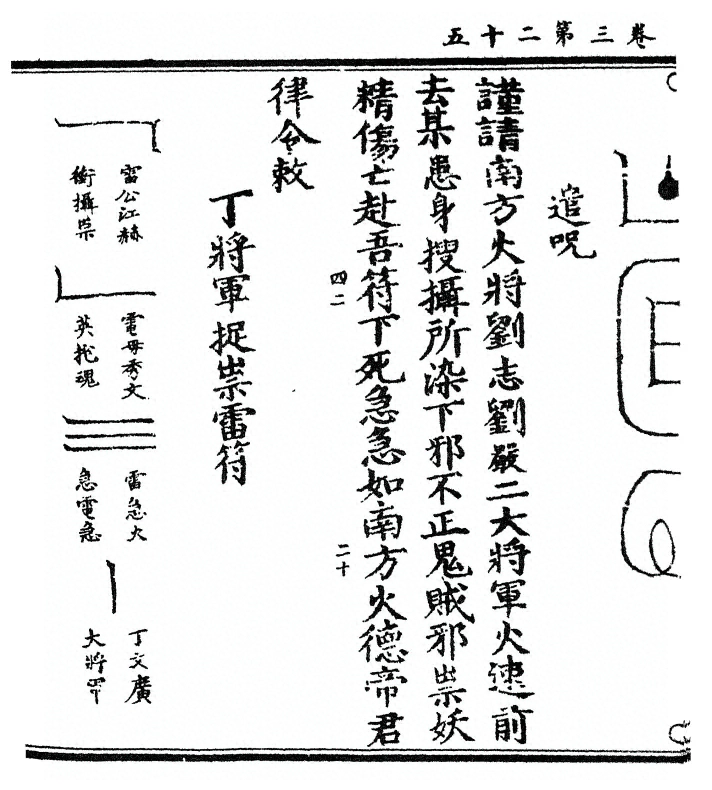 卷三第二十五
遣呪
謹請南方火將劉志劉嚴二大將軍火速前
去某患身搜攝所染下邪不正鬼賊邪祟妖
精傷亡赴吾符下死急急如南方火德帝君
四二
二十
律令敕
丁將軍捉祟雷符
雷公江赫
衝攝祟
電母秀文
英抡魂
雷急火
急電急
丁文廣
大將軍